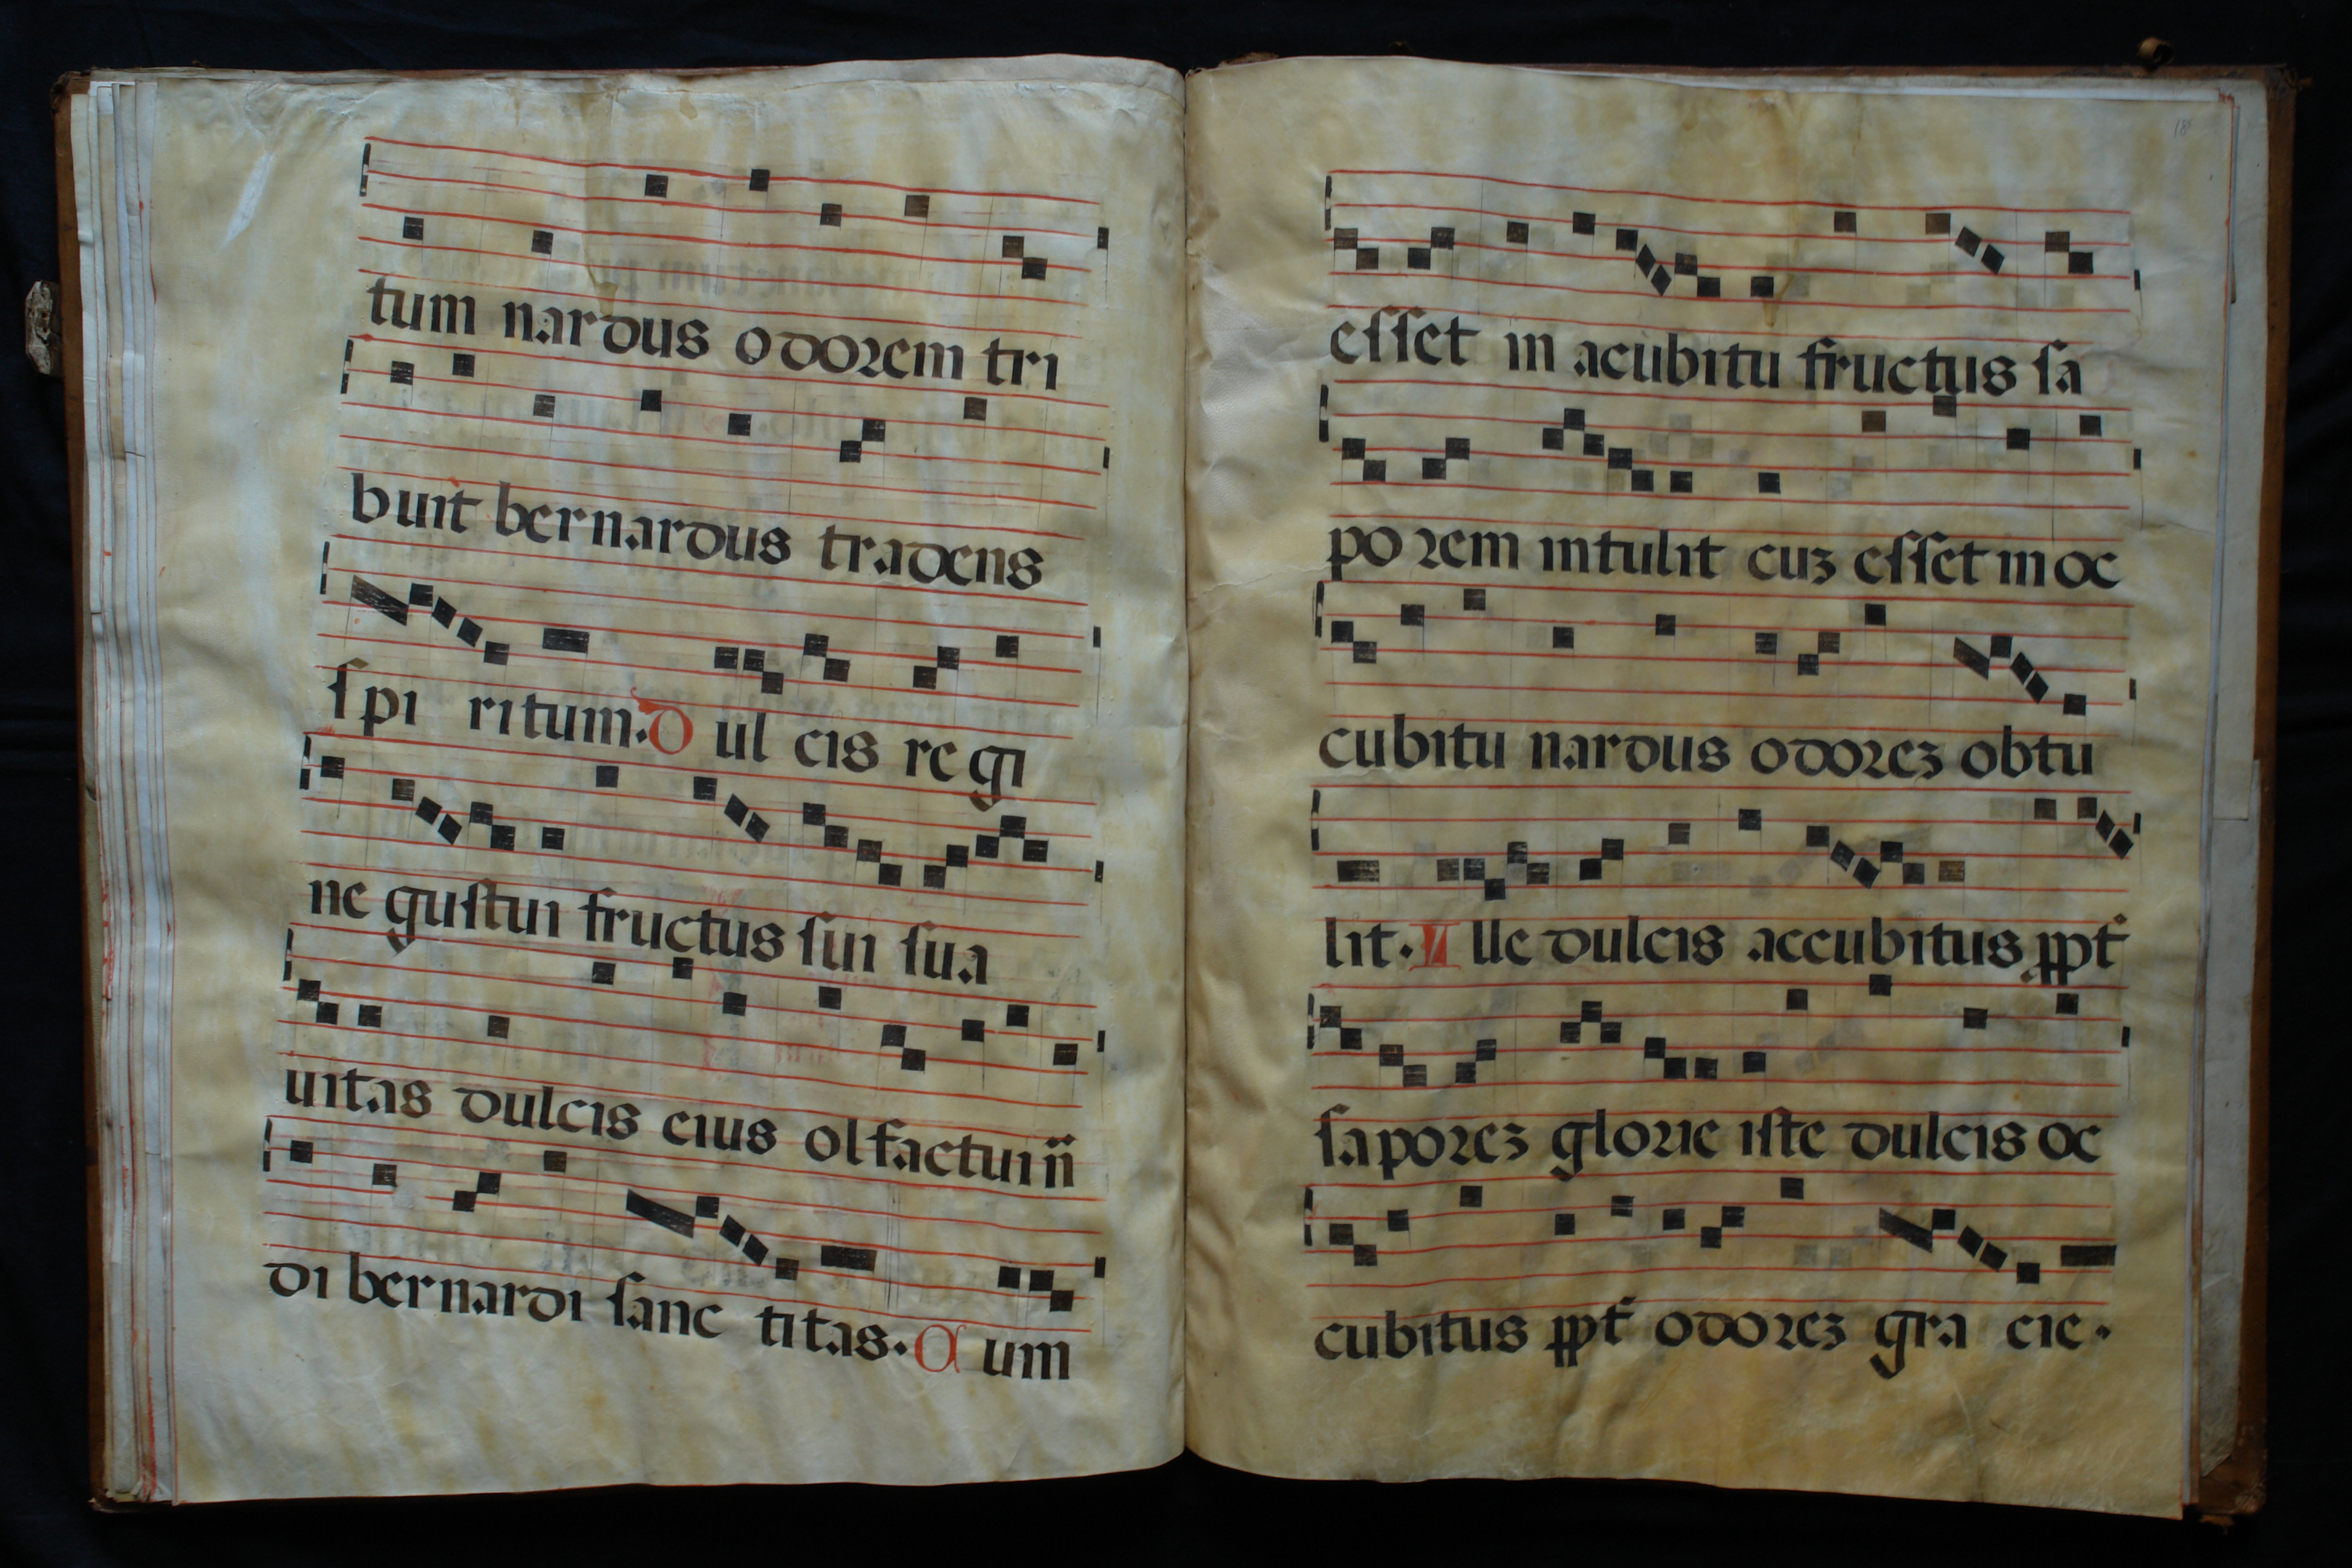 tum nardus odorem tri
buit bernardus tradens
ſpi ritum. D ul cis re gi
ne guſtui fructus ſui ſua
uitas dulcis eius olfactui n̄
di bernardi ſanc titas. C um
18
eſſet in acubitu fructus ſa
porem intulit cuꝫ eſſet in oc
cubitu nardus odoreꝫ obtu
lit. I lle dulcis accubitus ꝓpt̉
ſaporeꝫ glorie iſte dulcis oc
cubitus ꝓpt̉ odoreꝫ gra cie.